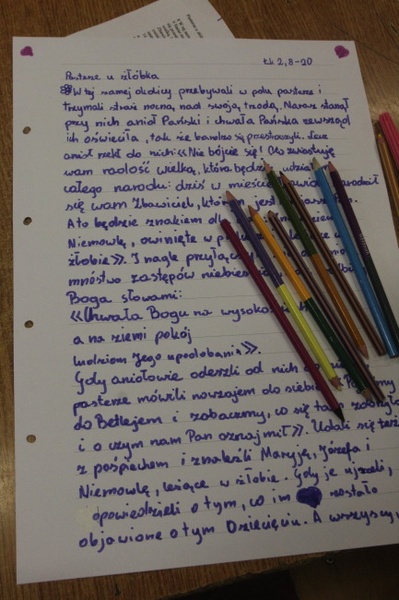 Łk 2,8-20
Pasterze u żłóbka
8W tej samej okolicy przebywali w polu pasterze i
trzymali straż nocną nad swoją trzodą. Naraz stanął
przy nich anioł Pański i chwała Pańska zewsząd
ich oświeciła, tak że bardzo się przestraszyli. Lecz
anioł rzekł do nich: «Nie bójcie się! Oto zwiastuję
wam radość wielką, która będzie udziałem
całego narodu: dziś w mieście narodził
się wam Zbawiciel, którym jest
A to będzie znakiem dla
Niemowlę, owinięte w
żłobie». I nagle
mnóstwo zastępów
Boga słowami:
«Chwała Bogu na wysokości
a na ziemi pokój
ludziom Jego upodobania».
Gdy aniołowie odeszli od nich do
pasterze mówili nawzajem do siebie:
do Betlejem i zobaczmy, co się tam zdarzyło
i o czym nam Pan oznajmił». Udali się też
z pośpiechem i znaleźli Maryję, Józefa i
Niemowlę, leżące w żłobie. Gdy je ujrzeli,
opowiedzieli o tym, co im zostało
objawione o tym Dziecięciu. A wszyscy,